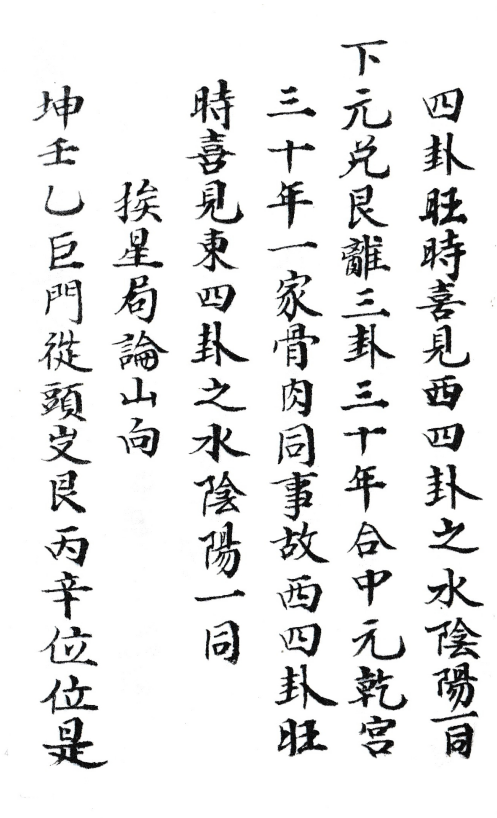 四卦旺時喜見西四卦之水陰陽一同
下元兑艮離三卦三十年合中元乾宮
三十年一家骨肉同事故西四卦旺
時喜見東四卦之水陰陽一同
挨星局論山向
坤壬乙巨門從頭出艮丙辛位位是